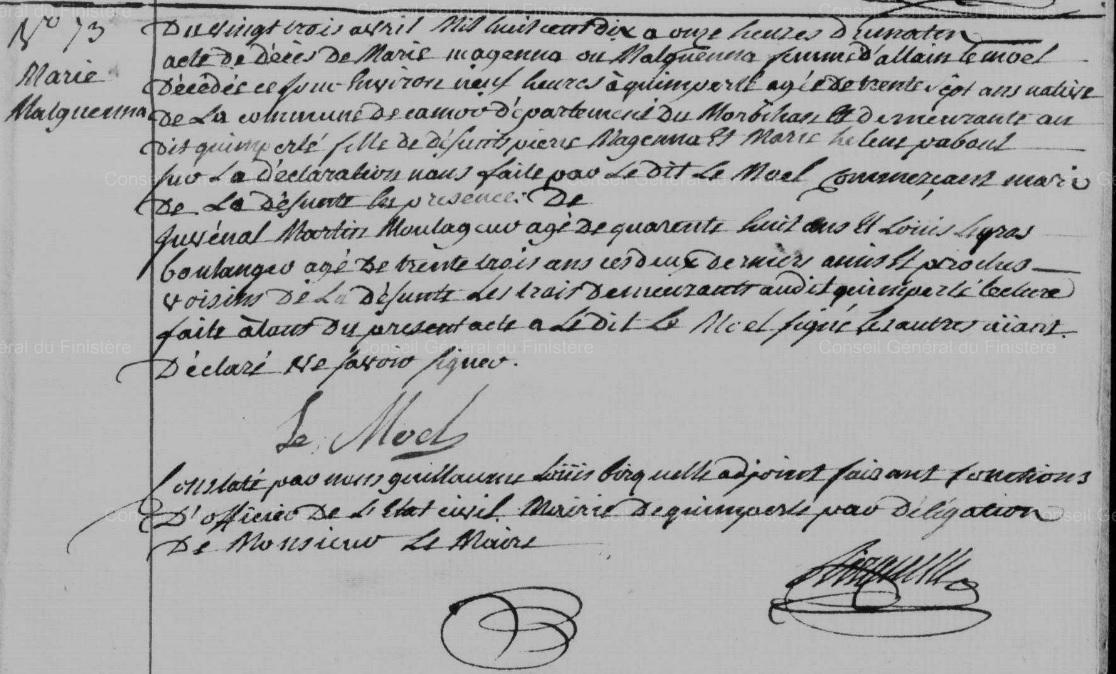 No 73
Marie
Malguenna
Du vingt trois avril Mil huit cent dix a onze heures du matin
acte de Déces de Marie magenna ou Malguenna femme d'allain le moel
Décédée ce jour Environ neuf heures à quimperlé agée de trente sept ans native
De La commune de camor département du Morbihan Et demeurante au
Dit quimperlé fille de défunts pierre Magenna Et Marie helene pabout
sur La déclaration nous faite par Le Dit Le Moel Commerçant mari
De La Défunte En présence De
Juvénal Martin Moulageur agé de quarente huit ans Et Louis Legras
boulanger agé De trente trois ans ces deux derniers amis Et proches
voisins De La Défunte Les trois Demeurants audit quimperlé Lecture
faite à tous du present acte a Le dit Le Moel signé Les autres aiant
Déclaré Ne savoir signer.
Le Moel
Constaté par nous guillaume Louis adjoint faisant fonctions
D'officier De L'Etat civil Mairie De quimperlé par Déligation
De Monsieur Le Maire
Conseil Général du Finistère